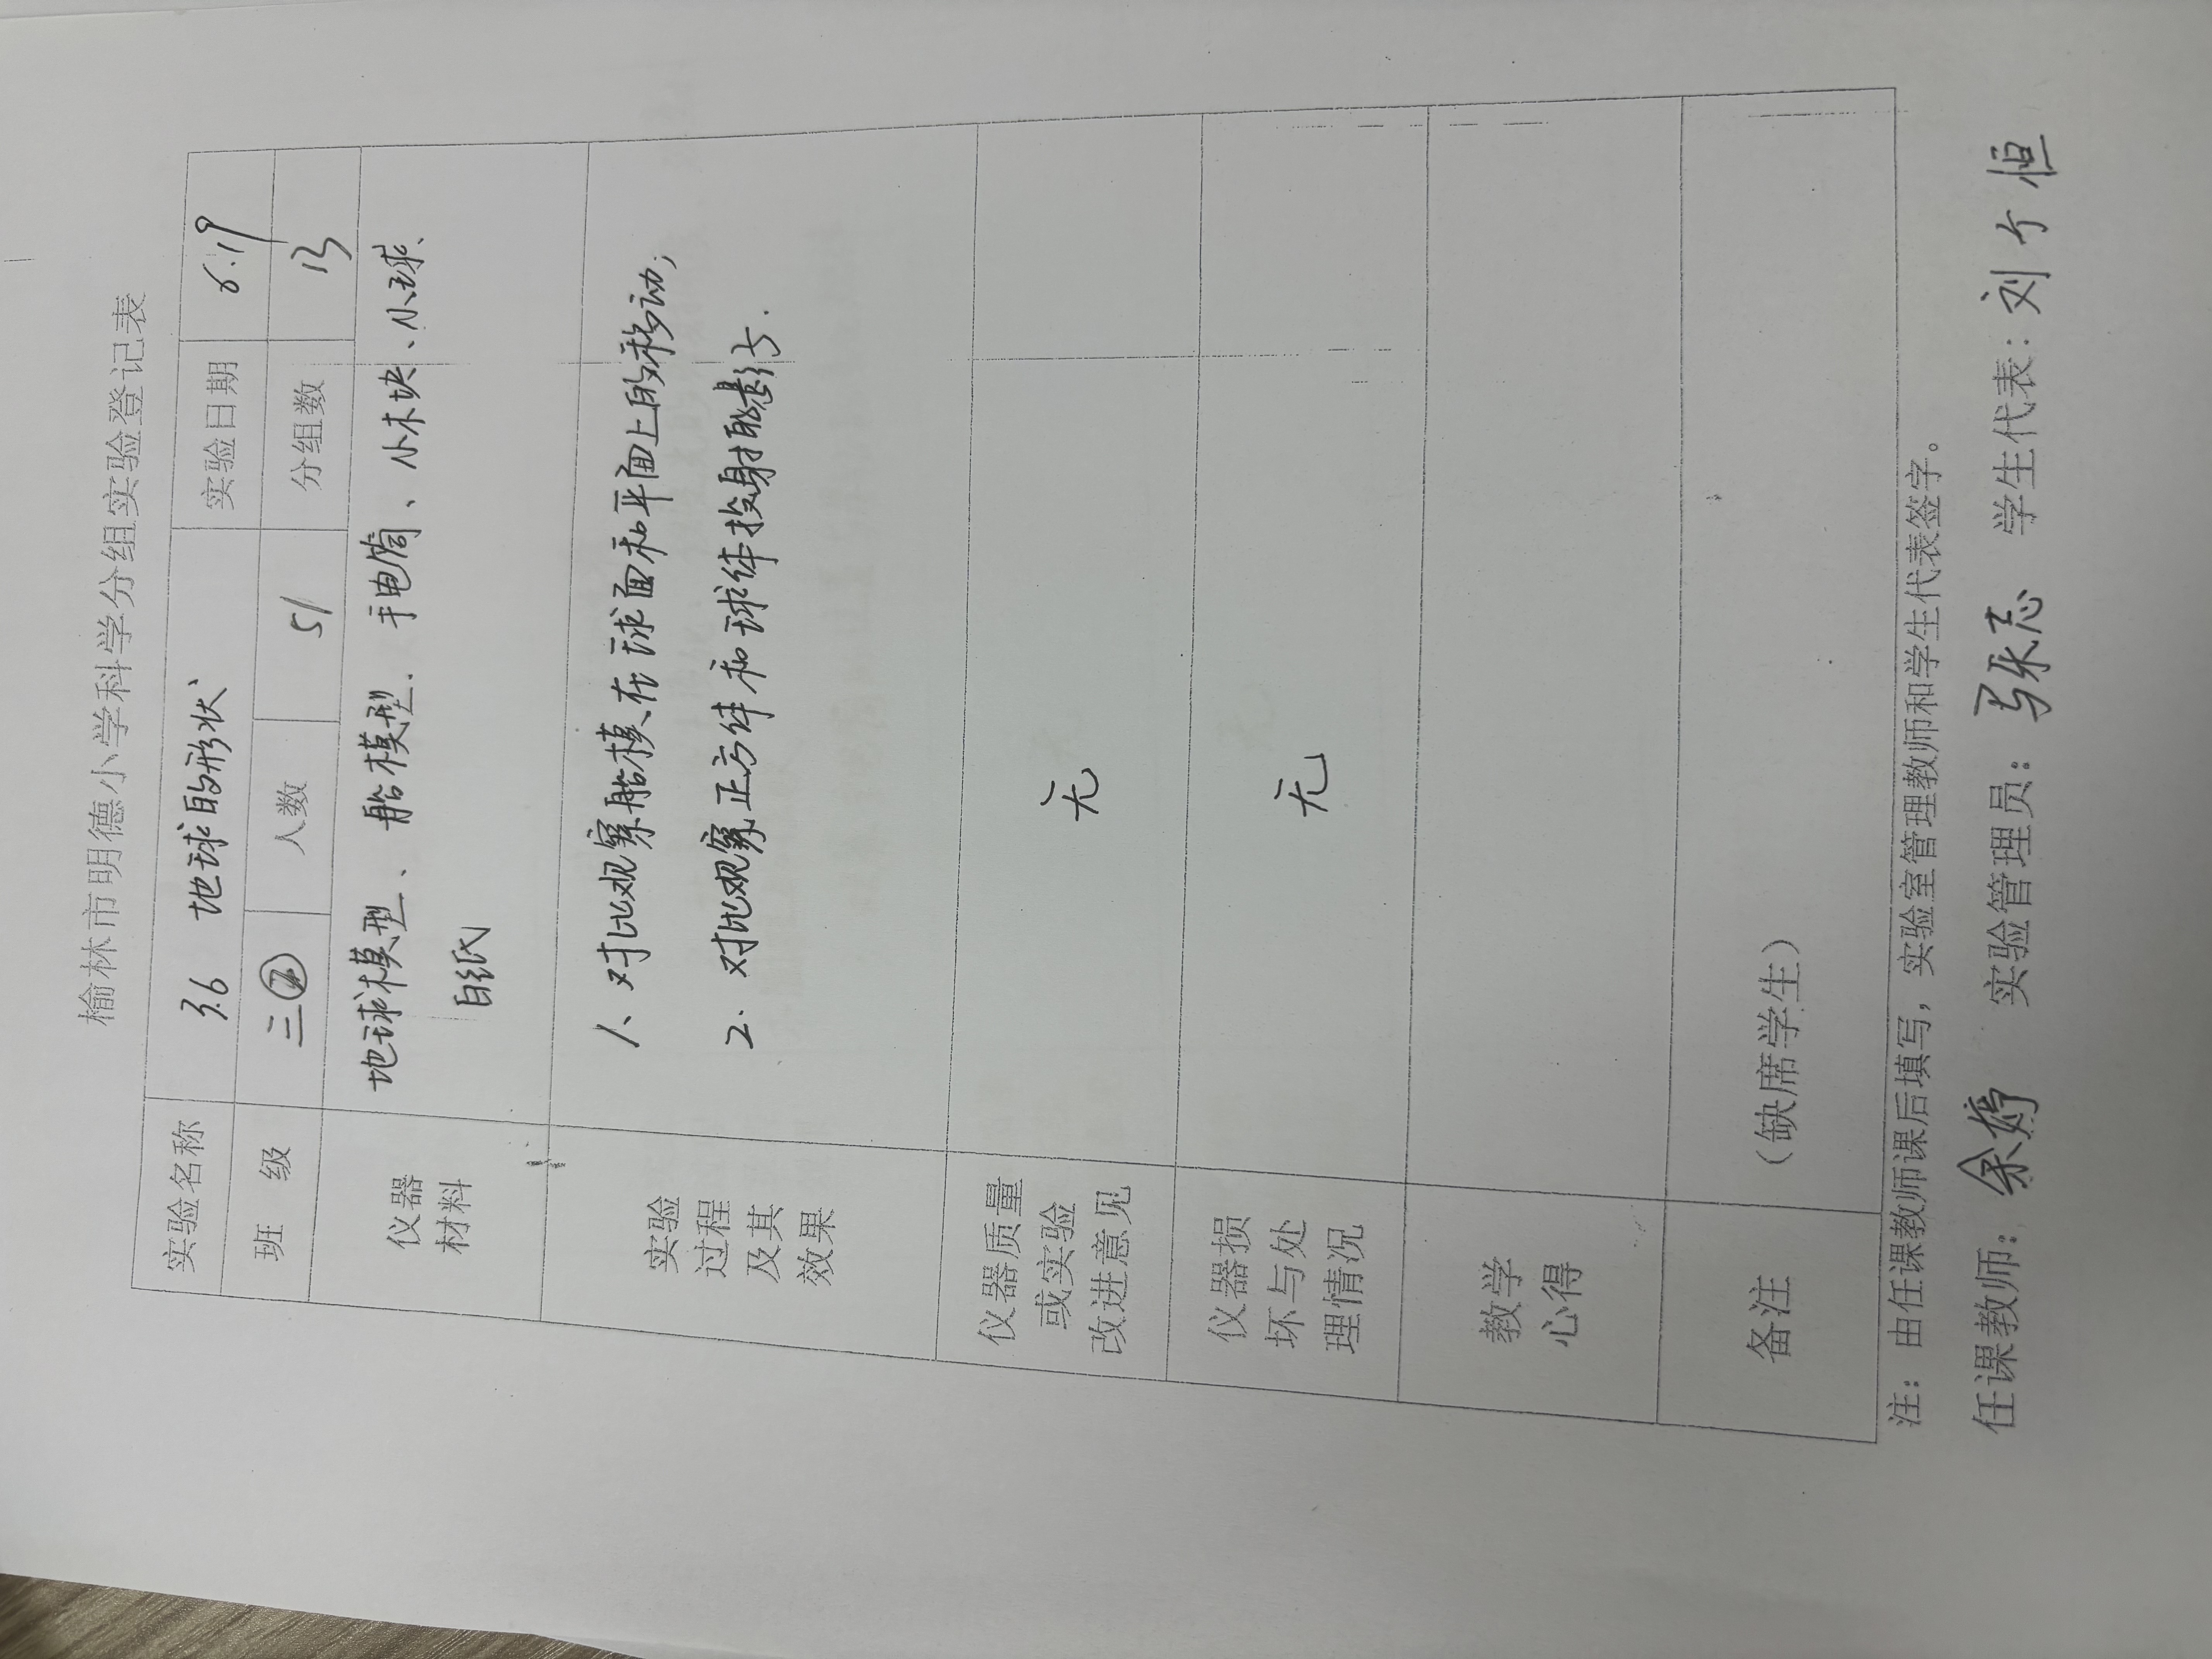 榆林市明德小学科学分组实验登记表
实验名称 3.6 地球的形状 实验日期 6.19
班 级 三 人数 51 分组数 13
仪器 材料 地球模型、船模型、手电筒、小木块、小球、
白纸
实验 过程 及其 效果 1、对比观察船模在球面和平面上的移动;
2. 对比观察正方体和球体投射的影子.
仪器质量 或实验 改进意见 无
仪器损 坏与处 理情况 无
教学 心得
备注 （缺席学生）
注：由任课教师课后填写，实验室管理教师和学生代表签字。
任课教师: 余婷 实验管理员: 学生代表: 刘 恒